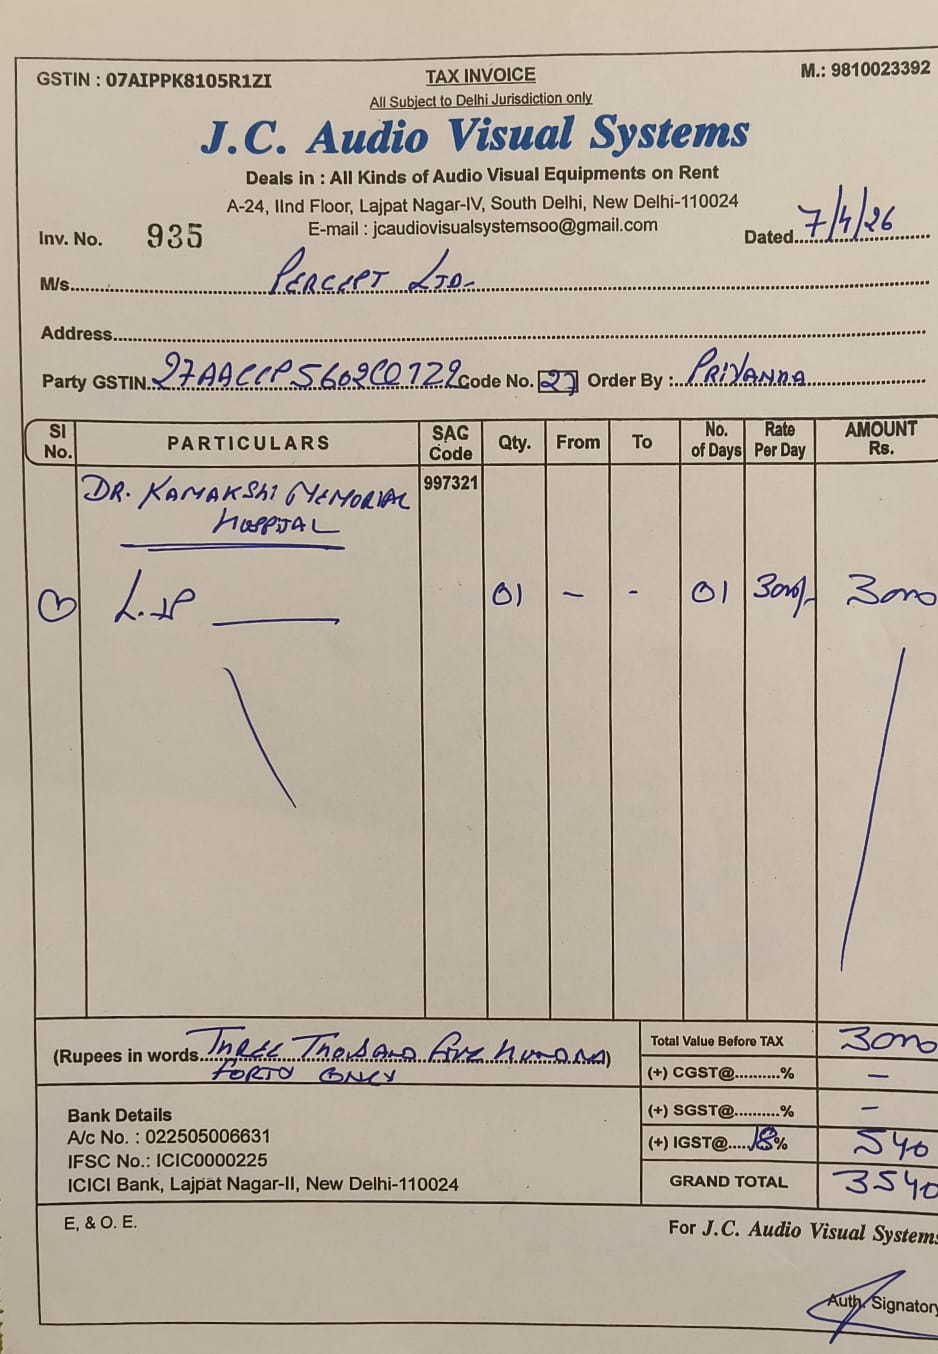 GSTIN : 07AIPPK8105R1ZI TAX INVOICE M.: 9810023392
All Subject to Delhi Jurisdiction only
J.C. Audio Visual Systems
Deals in : All Kinds of Audio Visual Equipments on Rent
A-24, IInd Floor, Lajpat Nagar-IV, South Delhi, New Delhi-110024
E-mail : jcaudiovisualsystemsoo@gmail.com
Inv. No. 935 Dated 7/4/26
M/s. PERCEPT LTD-
Address
Party GSTIN. Code No. 27 Order By : PRIYANNA
SI No. PARTICULARS SAG Code Qty. From To No. of Days Rate Per Day AMOUNT Rs.
DR. KAMAKSHI MEMORIAL 997321
HOSPITAL
01 – - 01 3000/- 3000
(Rupees in words THREE THOUSAND FIVE HUNDRED) Total Value Before TAX 3000
FORTY ONLY
(+) CGST@..........% –
Bank Details (+) SGST@..........% –
A/c No. : 022505006631 (+) IGST@.....18% 540
IFSC No.: ICIC0000225
ICICI Bank, Lajpat Nagar-II, New Delhi-110024 GRAND TOTAL 3540
E, & O. E. For J.C. Audio Visual Systems
Auth. Signatory